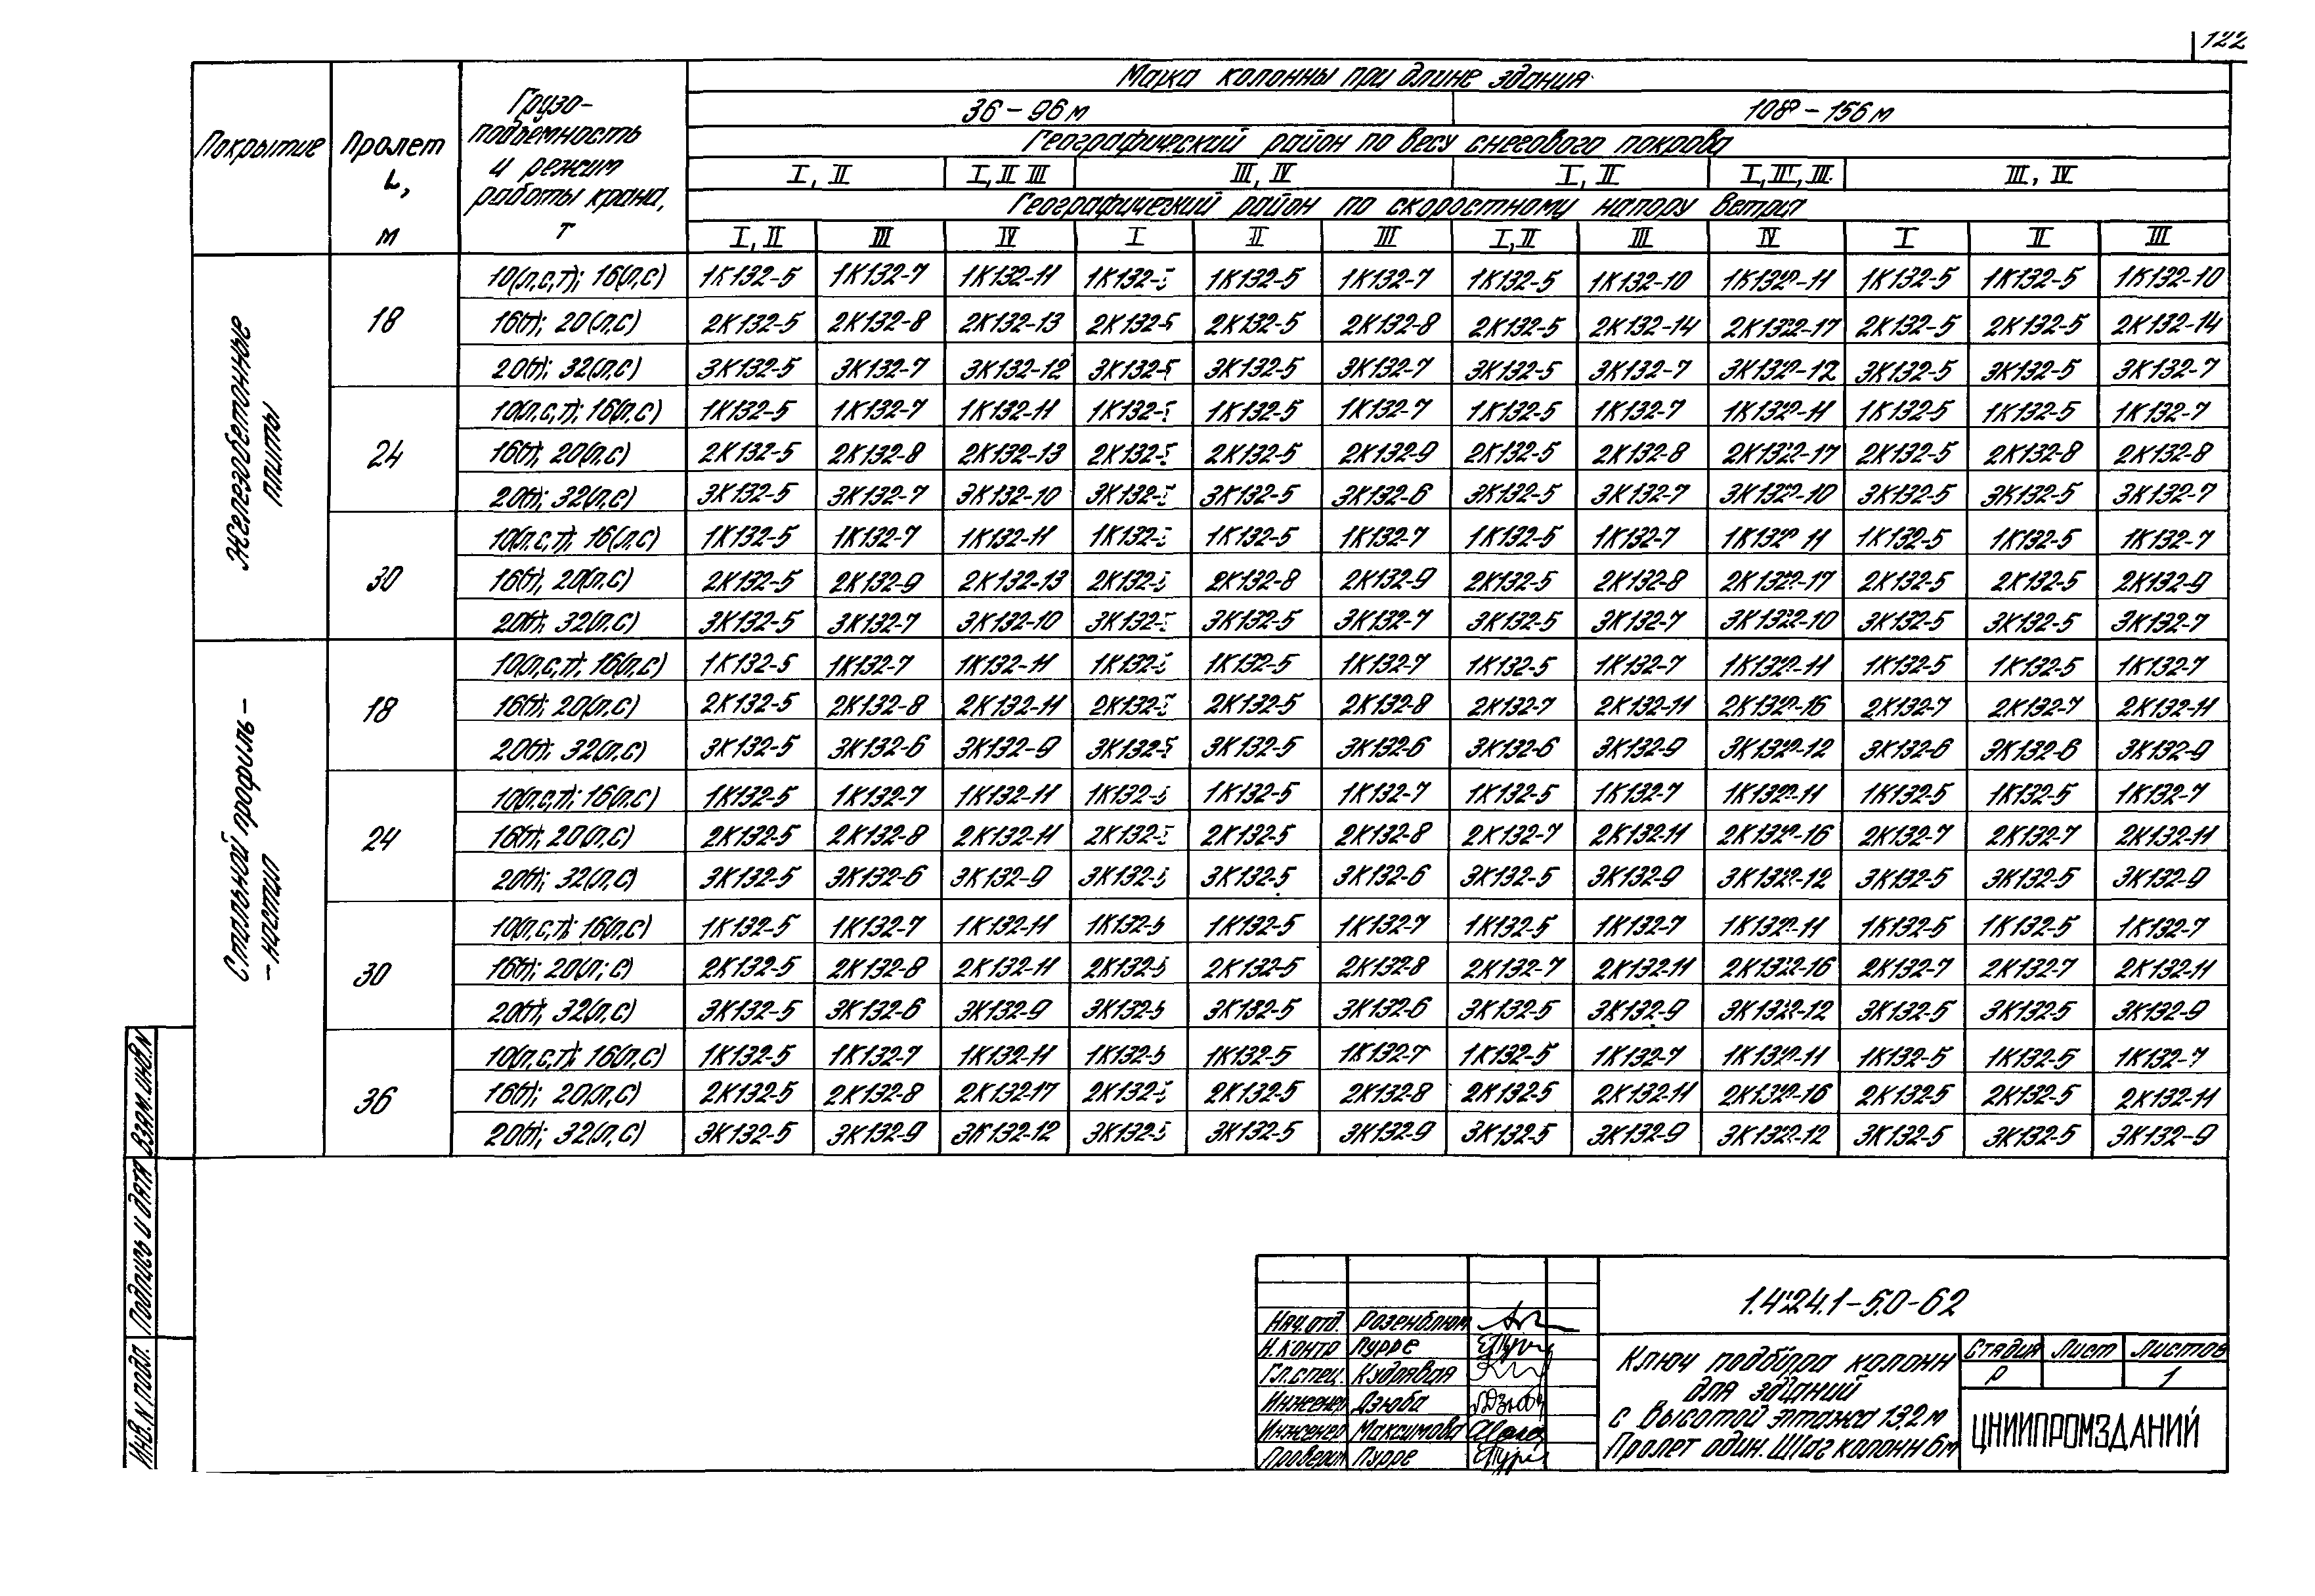 122
Марка колонны при длине здания
Покрытие | Пролет L, м | Грузо- подъемность и режим работы крана, т | 36 – 96 м | 108 – 156 м
Географический район по весу снегового покрова
I, II | I, II III | III, IV | I, II | I, II, III | III, IV
Географический район по скоростному напору ветра
I, II | III | IV | I | II | III | I, II | III | IV | I | II | III
Железобетонные плиты
18
10(л,с,т); 16(л,с) | 1К132-5 | 1К132-7 | 1К132-11 | 1К132-5 | 1К132-5 | 1К132-7 | 1К132-5 | 1К132-10 | 1К132-11 | 1К132-5 | 1К132-5 | 1К132-10
16(т); 20(л,с) | 2К132-5 | 2К132-8 | 2К132-13 | 2К132-5 | 2К132-5 | 2К132-8 | 2К132-5 | 2К132-14 | 2К132-17 | 2К132-5 | 2К132-5 | 2К132-14
20(т); 32(л,с) | 3К132-5 | 3К132-7 | 3К132-12 | 3К132-5 | 3К132-5 | 3К132-7 | 3К132-5 | 3К132-7 | 3К132-12 | 3К132-5 | 3К132-5 | 3К132-7
24
10(л,с,т); 16(л,с) | 1К132-5 | 1К132-7 | 1К132-11 | 1К132-5 | 1К132-5 | 1К132-7 | 1К132-5 | 1К132-7 | 1К132-11 | 1К132-5 | 1К132-5 | 1К132-7
16(т); 20(л,с) | 2К132-5 | 2К132-8 | 2К132-13 | 2К132-5 | 2К132-5 | 2К132-9 | 2К132-5 | 2К132-8 | 2К132-17 | 2К132-5 | 2К132-8 | 2К132-8
20(т); 32(л,с) | 3К132-5 | 3К132-7 | 3К132-10 | 3К132-5 | 3К132-5 | 3К132-6 | 3К132-5 | 3К132-7 | 3К132-10 | 3К132-5 | 3К132-5 | 3К132-7
30
10(л,с,т); 16(л,с) | 1К132-5 | 1К132-7 | 1К132-11 | 1К132-5 | 1К132-5 | 1К132-7 | 1К132-5 | 1К132-7 | 1К132 11 | 1К132-5 | 1К132-5 | 1К132-7
16(т); 20(л,с) | 2К132-5 | 2К132-9 | 2К132-13 | 2К132-5 | 2К132-8 | 2К132-9 | 2К132-5 | 2К132-8 | 2К132-17 | 2К132-5 | 2К132-5 | 2К132-9
20(т); 32(л,с) | 3К132-5 | 3К132-7 | 3К132-10 | 3К132-5 | 3К132-5 | 3К132-7 | 3К132-5 | 3К132-7 | 3К132-10 | 3К132-5 | 3К132-5 | 3К132-7
Стальной профиль-
-настил
18
10(л,с,т); 16(л,с) | 1К132-5 | 1К132-7 | 1К132-11 | 1К132-5 | 1К132-5 | 1К132-7 | 1К132-5 | 1К132-7 | 1К132-11 | 1К132-5 | 1К132-5 | 1К132-7
16(т); 20(л,с) | 2К132-5 | 2К132-8 | 2К132-11 | 2К132-5 | 2К132-5 | 2К132-8 | 2К132-7 | 2К132-11 | 2К132-16 | 2К132-7 | 2К132-7 | 2К132-11
20(т); 32(л,с) | 3К132-5 | 3К132-6 | 3К132-9 | 3К132-5 | 3К132-5 | 3К132-6 | 3К132-6 | 3К132-9 | 3К132-12 | 3К132-6 | 3К132-6 | 3К132-9
24
10(л,с,т); 16(л,с) | 1К132-5 | 1К132-7 | 1К132-11 | 1К132-5 | 1К132-5 | 1К132-7 | 1К132-5 | 1К132-7 | 1К132-11 | 1К132-5 | 1К132-5 | 1К132-7
16(т); 20(л,с) | 2К132-5 | 2К132-8 | 2К132-11 | 2К132-5 | 2К132-5 | 2К132-8 | 2К132-7 | 2К132-11 | 2К132-16 | 2К132-7 | 2К132-7 | 2К132-11
20(т); 32(л,с) | 3К132-5 | 3К132-6 | 3К132-9 | 3К132-5 | 3К132-5 | 3К132-6 | 3К132-5 | 3К132-9 | 3К132-12 | 3К132-5 | 3К132-5 | 3К132-9
30
10(л,с,т); 16(л,с) | 1К132-5 | 1К132-7 | 1К132-11 | 1К132-5 | 1К132-5 | 1К132-7 | 1К132-5 | 1К132-7 | 1К132-11 | 1К132-5 | 1К132-5 | 1К132-7
16(т); 20(л; с) | 2К132-5 | 2К132-8 | 2К132-11 | 2К132-5 | 2К132-5 | 2К132-8 | 2К132-7 | 2К132-11 | 2К132-16 | 2К132-7 | 2К132-7 | 2К132-11
20(т); 32(л,с) | 3К132-5 | 3К132-6 | 3К132-9 | 3К132-5 | 3К132-5 | 3К132-6 | 3К132-5 | 3К132-9 | 3К132-12 | 3К132-5 | 3К132-5 | 3К132-9
36
10(л,с,т); 16(л,с) | 1К132-5 | 1К132-7 | 1К132-11 | 1К132-5 | 1К132-5 | 1К132-7 | 1К132-5 | 1К132-7 | 1К132-11 | 1К132-5 | 1К132-5 | 1К132-7
16(т); 20(л,с) | 2К132-5 | 2К132-8 | 2К132-17 | 2К132-5 | 2К132-5 | 2К132-8 | 2К132-5 | 2К132-11 | 2К132-16 | 2К132-5 | 2К132-5 | 2К132-11
20(т); 32(л,с) | 3К132-5 | 3К132-9 | 3К132-12 | 3К132-5 | 3К132-5 | 3К132-9 | 3К132-5 | 3К132-9 | 3К132-12 | 3К132-5 | 3К132-5 | 3К132-9
Взам.инв.N
Подпись и дата
Инв.N подл.
1.424.1-5.0-62
Нач.отд. Розенблюм
Н.контр Пурре
Гл.спец. Кудрявая
Инженер Дзюба
Инженер Максимова
Проверил Пурре
Ключ подбора колонн
для зданий
с высотой этажа 13,2 м
Пролет один. Шаг колонн 6м
Стадия Лист Листов
Р 1
ЦНИИПРОМЗДАНИЙ